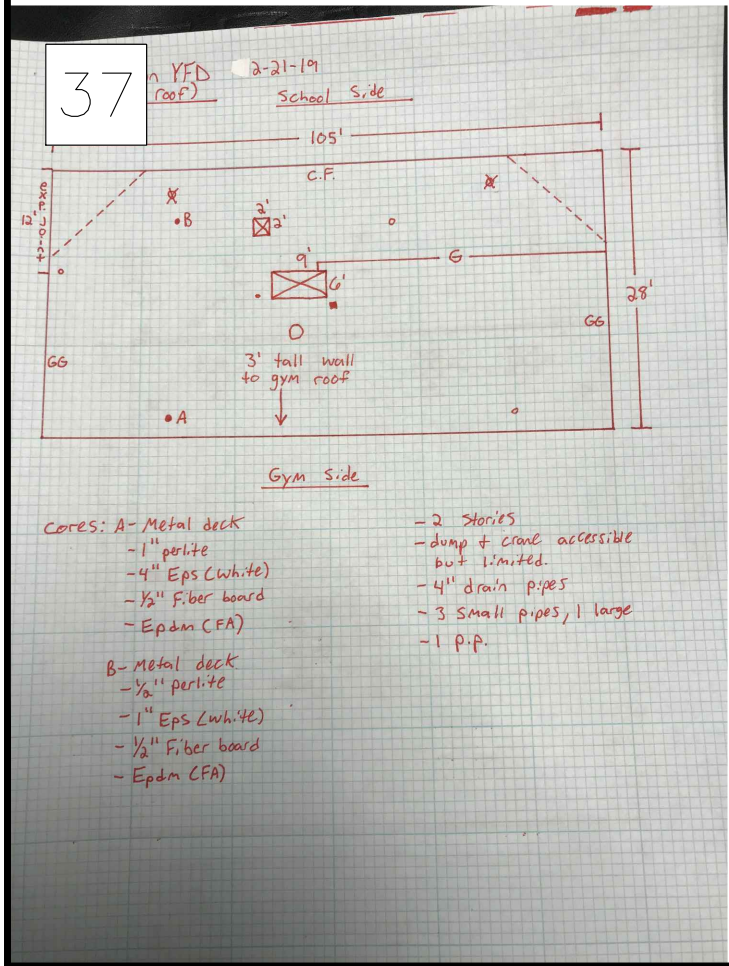 37
n YFD 2-21-19
roof)
School Side
105'
C.F.
12'
2'
B
2'
9'
G
6'
28'
GG
GG
3' tall wall
to gym roof
A
Gym Side
Cores: A- Metal deck
-1" perlite
-4" Eps (white)
-1/2" Fiber board
- Epdm (FA)
B- Metal deck
-1/2" perlite
-1" Eps (white)
-1/2" Fiber board
- Epdm (FA)
-2 Stories
-dump + crane accessible
but limited.
-4" drain pipes
-3 small pipes, 1 large
-1 p.p.